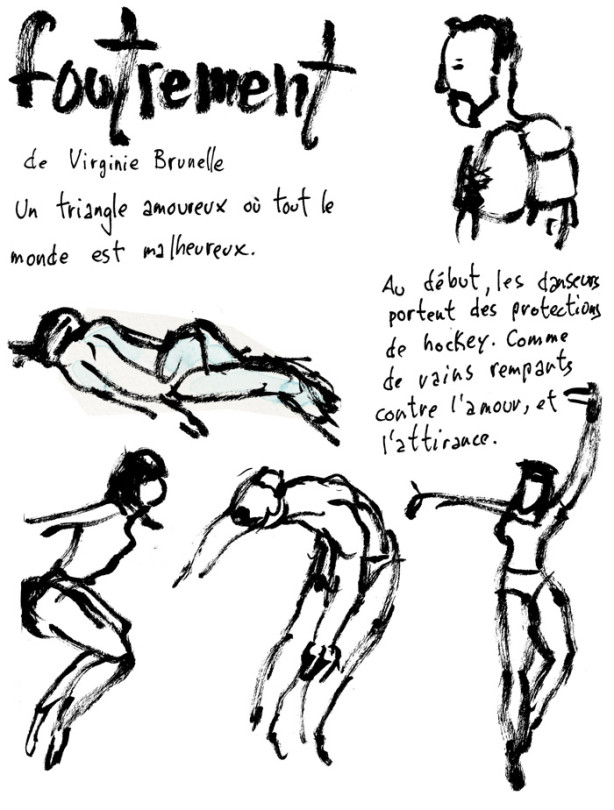 foutrement
de Virginie Brunelle
Un triangle amoureux où tout le
monde est malheureux.
Au début, les danseurs
portent des protections
de hockey. Comme
de vains remparts
contre l'amour, et
l'attirance.